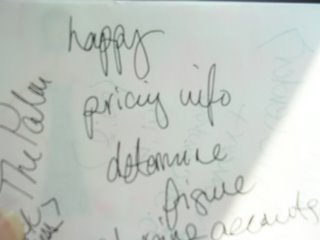 happy
pricing info
determine
figure
accounts
The Palm